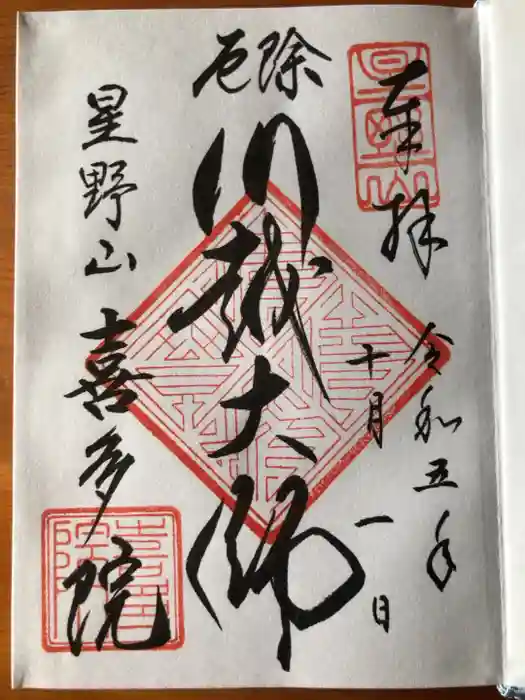 奉拝
令和五年
十月一日
厄除
川越大師
星野山
喜多院